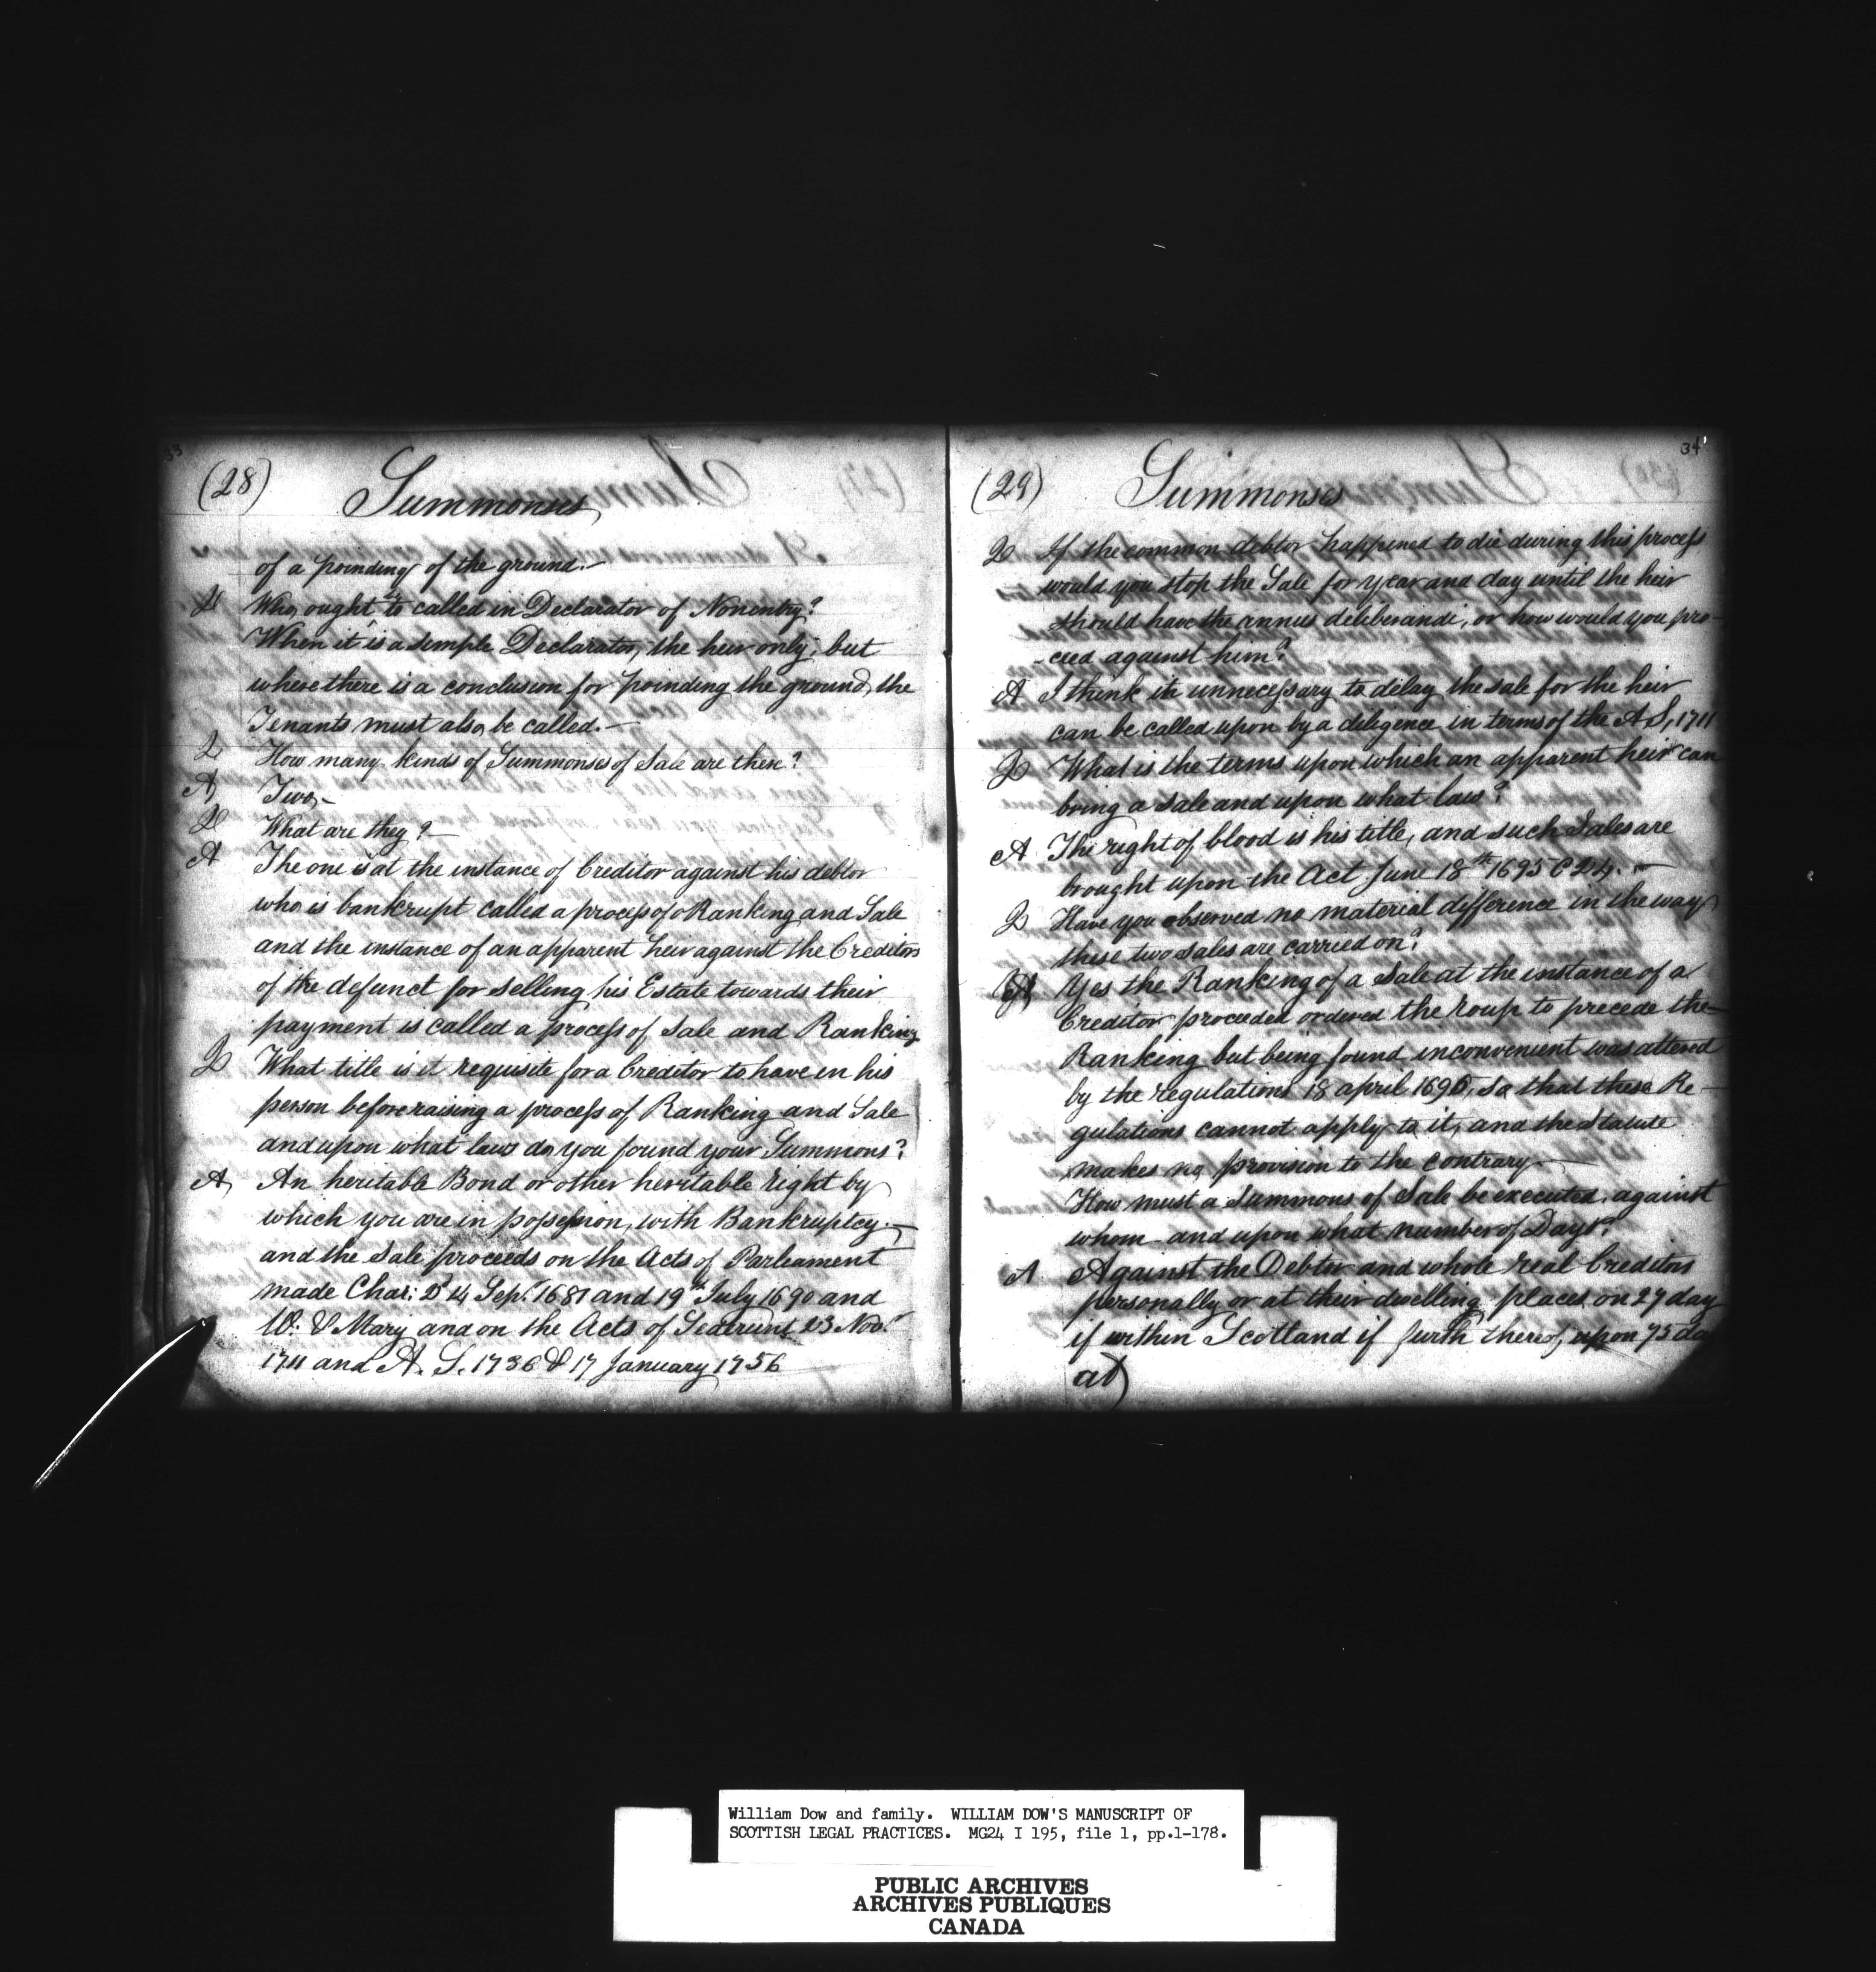 33
(28) Summonses
of a poinding of the ground.—
Q Who ought to called in Declarator of Nonentry?
When it is a simple Declarator, the heir only; but
where there is a conclusion for poinding the ground, the
Tenants must also be called.—
Q How many kinds of Summonses of Sale are there?
A Two.—
Q What are they?—
A The one is at the instance of Creditor against his debtor
who is bankrupt called a process of Ranking and Sale
and the instance of an apparent heir against the Creditors
of the defunct for selling his Estate towards their
payment is called a process of Sale and Ranking
Q What title is it requisite for a Creditor to have in his
person before raising a process of Ranking and Sale
and upon what laws do you found your Summons?
A An heritable Bond or other heritable right by
which you are in possession, with Bankruptcy.—
and the Sale proceeds on the Acts of Parliament
made Char: 2d 14 Sep. 1681 and 19th July 1690 and
W. & Mary and on the Acts of Sederunt 23 Nov.
1711 and A. S. 1736 & 17 January 1756
34
(29) Summonses
Q If the common debtor happened to die during this process
would you stop the Sale for year and day until the heir
should have the annus deliberandi, or how would you pro-
-ceed against him?
A I think it unnecessary to delay the sale for the heir
can be called upon by a diligence in terms of the A S, 1711
Q What is the terms upon which an apparent heir can
bring a sale and upon what law?
A The right of blood is his title, and such Sales are
brought upon the Act June 18th 1695 C 24.—
Q Have you observed no material difference in the way
these two sales are carried on?
A Yes the Ranking of a Sale at the instance of a
Creditor proceeded ordered the roup to precede the
Ranking but being found inconvenient was altered
by the regulations 18 april 1695, so that these Re-
gulations cannot apply to it, and the Statute
makes no provision to the contrary—
How must a Summons of Sale be executed, against
whom and upon what number of Days?
A Against the Debtor and whole real Creditors
personally or at their dwelling places on 27 day
if within Scotland if furth thereof, upon 75 da
at)
William Dow and family. WILLIAM DOW'S MANUSCRIPT OF
SCOTTISH LEGAL PRACTICES. MG24 I 195, file 1, pp.1-178.
PUBLIC ARCHIVES
ARCHIVES PUBLIQUES
CANADA